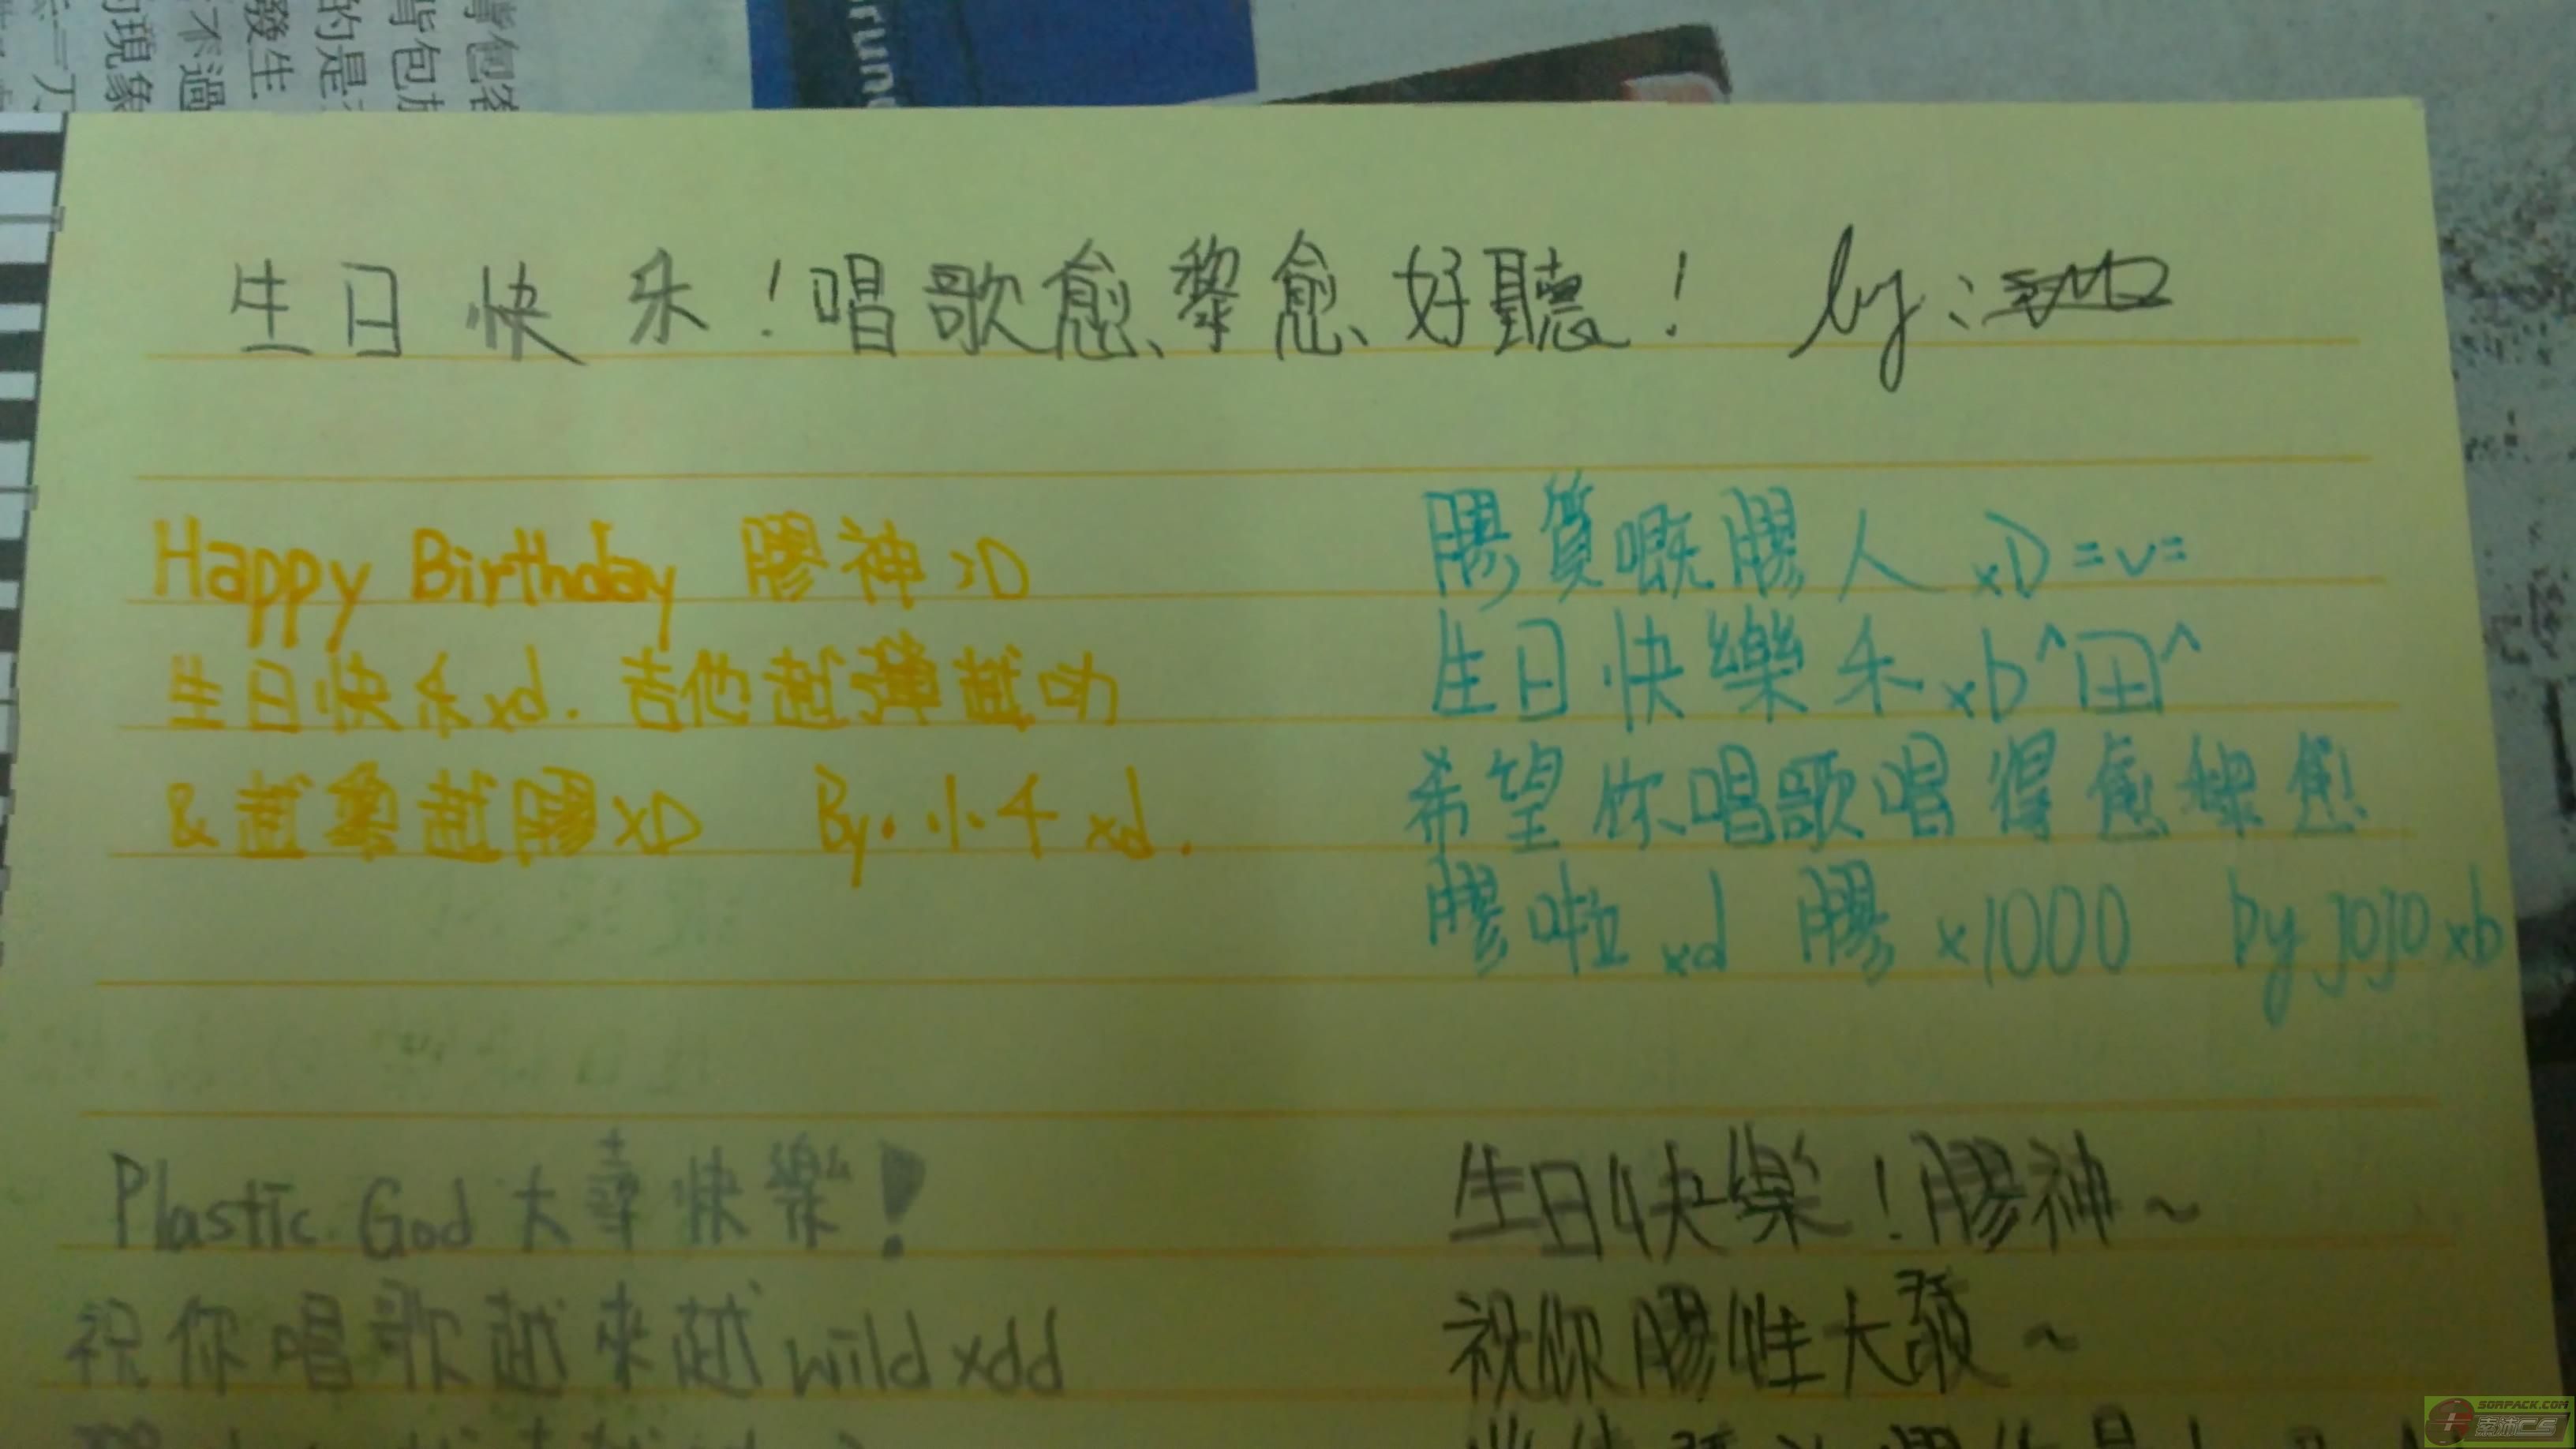 生日快乐!唱歌愈黎愈好聽! by:
Happy Birthday 膠神 :D
生日快乐xd. 吉他越彈越
&越 越膠 xD By. 小千 xd.
膠質嘅膠人 xD =v=
生日快樂禾 xb ^田^
希望你唱歌唱得愈 愈
膠啦 xd 膠 x1000 by JOJO xb
Plastic God 大壽快樂!
祝你唱歌越來越 wild xdd
生日快樂!膠神~
祝你膠性大發~
背包
的是
發生
不過
的現象
SORPACK.COM